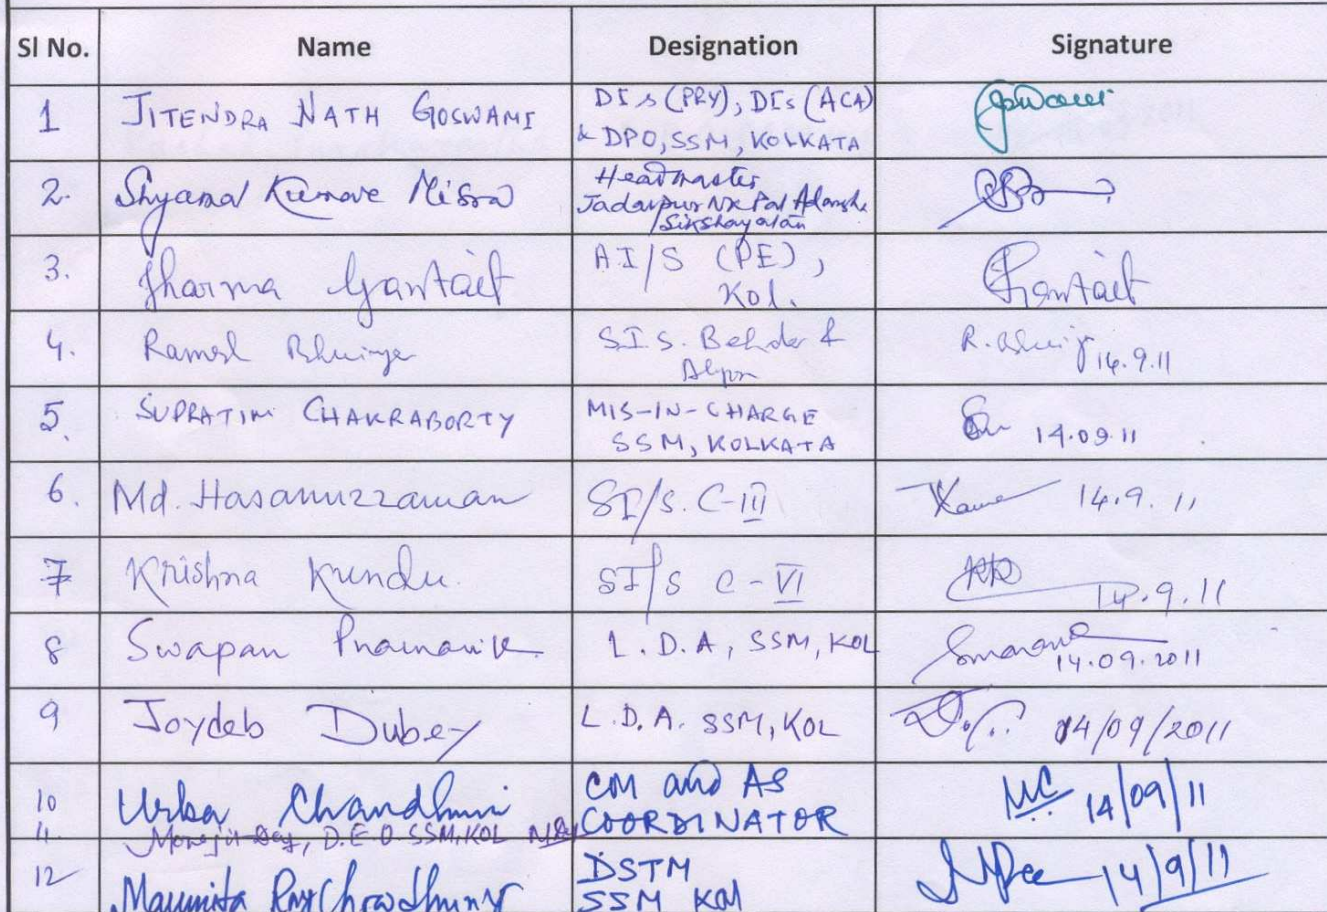 Sl No. Name Designation Signature
1 JITENDRA NATH GOSWAMI DIs (PRY), DIs (ACA)
& DPO, SSM, KOLKATA
2. Shyamal Kumar Misra Headmaster
Jadavpur N K Pal Adarsha
Sikshayatan
3. Jharna Gantait AI/S (PE), Gantait
Kol.
4. SI S. R. 14.9.11
5. SUPRATIM CHAKRABORTY MIS-IN-CHARGE 14.09.11
SSM, KOLKATA
6. Md. Hasanuzzaman SI/S. C-III 14.9.11
7 Krishna Kundu. SI/S C-VI 14.9.11
8 Swapan Pramanik L.D.A, SSM, KOL 14.09.2011
9 Joydeb Dubey L.D.A. SSM, KOL 14/09/2011
10 Urba Chaudhuri CM and AS UC 14/09/11
COORDINATOR
11. D.E.O. SSM, KOL
12 Maumita Ray Chowdhury DSTM 14/9/11
SSM KOL